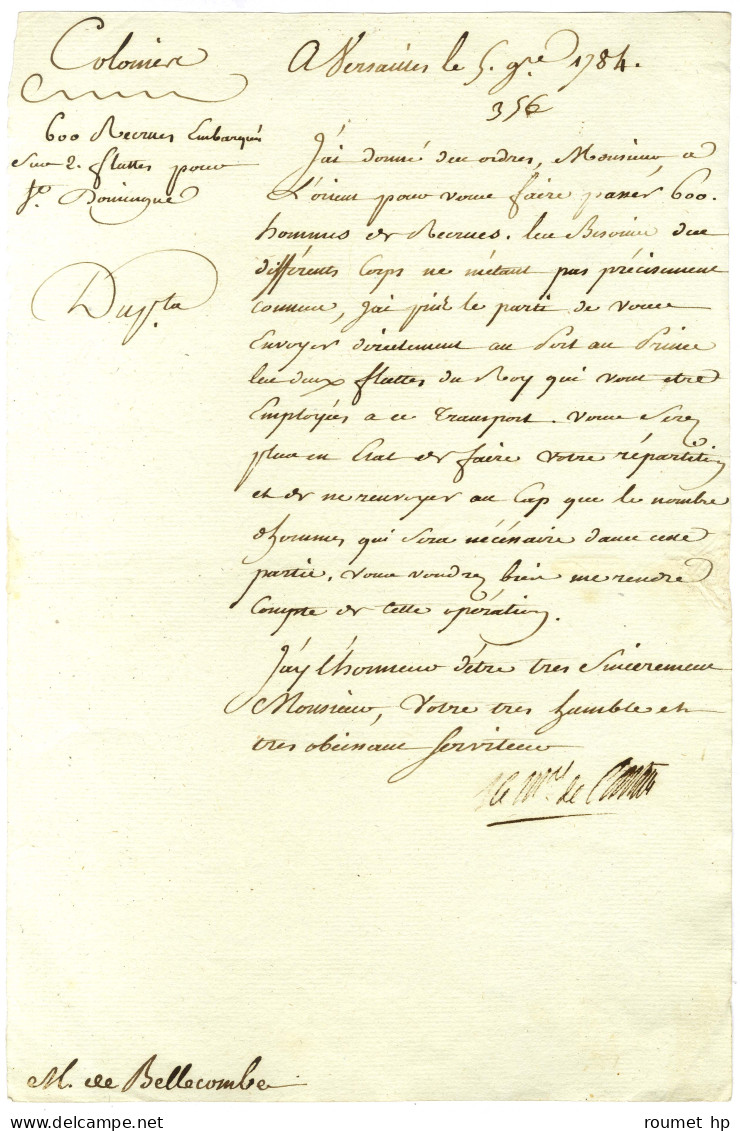 Colonies
A Versailles le 5. 9bre 1784.
356
600 Recrues Embarqués
Sur 2. fluttes pour
St. Domingue
Dupta
J'ai donné des ordres, Monsieur, a
L'orient pour vous faire passer 600.
hommes de Recrues. les Besoins des
différents Corps ne m'étant pas précisement
connus, J'ai pris le parti de vous
Envoyer directement au Port au Prince
les deux fluttes du Roy qui vont etre
Employés a ce Transport. vous serez
plus en Etat de faire votre répartition
et de ne renvoyer au Cap que le nombre
d'hommes qui sera nécessaire dans cette
partie. vous voudrez bien me rendre
Compte de cette opération.
J'ay l'honneur d'être tres sincerement
Monsieur, Votre tres humble et
tres obeissant serviteur
le Mal de Castries
M. de Bellecombe
roumet hp